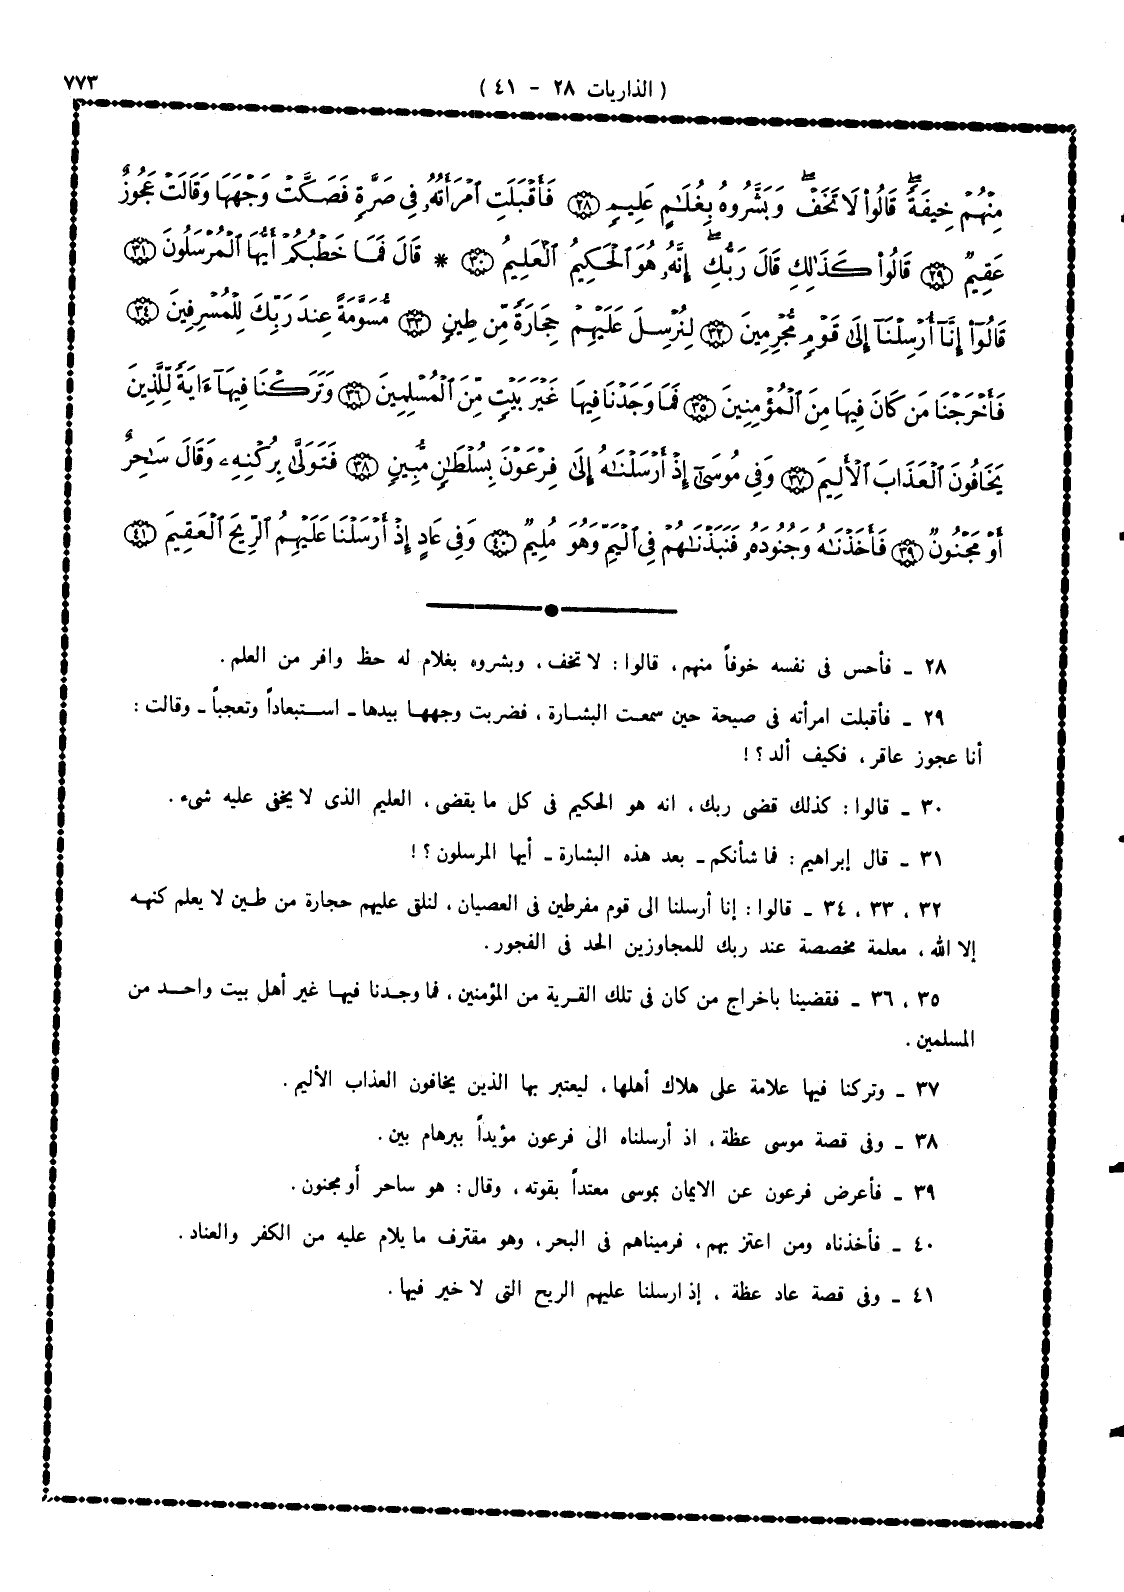 ٧٧٣
( الذاريات ٢٨ - ٤١ )
مِنْهُمْ خِيفَةً ۖ قَالُوا۟ لَا تَخَفْ ۖ وَبَشَّرُوهُ بِغُلَـٰمٍ عَلِيمٍ ﴿٢٨﴾ فَأَقْبَلَتِ ٱمْرَأَتُهُۥ فِى صَرَّةٍ فَصَكَّتْ وَجْهَهَا وَقَالَتْ عَجُوزٌ
عَقِيمٌ ﴿٢٩﴾ قَالُوا۟ كَذَٰلِكِ قَالَ رَبُّكِ ۖ إِنَّهُۥ هُوَ ٱلْحَكِيمُ ٱلْعَلِيمُ ﴿٣٠﴾ * قَالَ فَمَا خَطْبُكُمْ أَيُّهَا ٱلْمُرْسَلُونَ ﴿٣١﴾
قَالُوٓا۟ إِنَّآ أُرْسِلْنَآ إِلَىٰ قَوْمٍ مُّجْرِمِينَ ﴿٣٢﴾ لِنُرْسِلَ عَلَيْهِمْ حِجَارَةً مِّن طِينٍ ﴿٣٣﴾ مُّسَوَّمَةً عِندَ رَبِّكَ لِلْمُسْرِفِينَ ﴿٣٤﴾
فَأَخْرَجْنَا مَن كَانَ فِيهَا مِنَ ٱلْمُؤْمِنِينَ ﴿٣٥﴾ فَمَا وَجَدْنَا فِيهَا غَيْرَ بَيْتٍ مِّنَ ٱلْمُسْلِمِينَ ﴿٣٦﴾ وَتَرَكْنَا فِيهَآ ءَايَةً لِّلَّذِينَ
يَخَافُونَ ٱلْعَذَابَ ٱلْأَلِيمَ ﴿٣٧﴾ وَفِى مُوسَىٰٓ إِذْ أَرْسَلْنَـٰهُ إِلَىٰ فِرْعَوْنَ بِسُلْطَـٰنٍ مُّبِينٍ ﴿٣٨﴾ فَتَوَلَّىٰ بِرُكْنِهِۦ وَقَالَ سَـٰحِرٌ
أَوْ مَجْنُونٌ ﴿٣٩﴾ فَأَخَذْنَـٰهُ وَجُنُودَهُۥ فَنَبَذْنَـٰهُمْ فِى ٱلْيَمِّ وَهُوَ مُلِيمٌ ﴿٤٠﴾ وَفِى عَادٍ إِذْ أَرْسَلْنَا عَلَيْهِمُ ٱلرِّيحَ ٱلْعَقِيمَ ﴿٤١﴾
٢٨ ـ فأحس فى نفسه خوفاً منهم ، قالوا : لا تخف ، وبشروه بغلام له حظ وافر من العلم .
٢٩ ـ فأقبلت امرأته فى صيحة حين سمعت البشارة ، فضربت وجهها بيدها ـ استبعاداً وتعجباً ـ وقالت :
أنا عجوز عاقر ، فكيف ألد ؟ !
٣٠ ـ قالوا : كذلك قضى ربك ، انه هو الحكيم فى كل ما يقضى ، العليم الذى لا يخفى عليه شىء .
٣١ ـ قال إبراهيم : فما شأنكم ـ بعد هذه البشارة ـ أيها المرسلون ؟ !
٣٢ ، ٣٣ ، ٣٤ ـ قالوا : إنا أرسلنا الى قوم مفرطين فى العصيان ، لنلقى عليهم حجارة من طين لا يعلم كنهه
إلا الله ، معلمة مخصصة عند ربك للمجاوزين الحد فى الفجور .
٣٥ ، ٣٦ ـ فقضينا باخراج من كان فى تلك القرية من المؤمنين ، فما وجدنا فيها غير أهل بيت واحد من
المسلمين .
٣٧ ـ وتركنا فيها علامة على هلاك أهلها ، ليعتبر بها الذين يخافون العذاب الأليم .
٣٨ ـ وفى قصة موسى عظة ، اذ أرسلناه الى فرعون مؤيداً ببرهام بين .
٣٩ ـ فأعرض فرعون عن الايمان بموسى معتداً بقوته ، وقال : هو ساحر أو مجنون .
٤٠ ـ فأخذناه ومن اعتز بهم ، فرميناهم فى البحر ، وهو مقترف ما يلام عليه من الكفر والعناد .
٤١ ـ وفى قصة عاد عظة ، إذ ارسلنا عليهم الريح التى لا خير فيها .